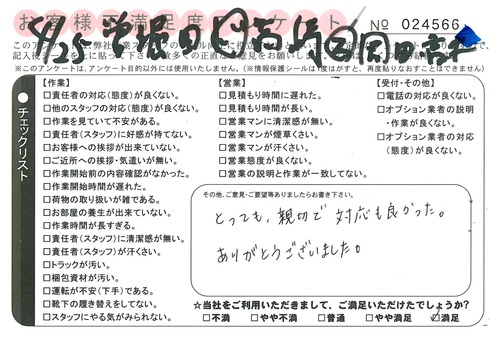 お客様満足度アンケート No 024566
※このアンケートは、アンケート目的以外には使用いたしません。(※情報保護シールは1度はがすと、再度貼りなおすことはできません)
チェックリスト
【作業】
□責任者の対応(態度)が良くない。
□他のスタッフの対応(態度)が良くない。
□作業を見ていて不安がある。
□責任者(スタッフ)に好感が持てない。
□お客様への挨拶が出来ていない。
□ご近所への挨拶・気遣いが無い。
□作業開始前の内容確認がなかった。
□作業開始時間が遅れた。
□荷物の取り扱いが雑である。
□お部屋の養生が出来ていない。
□作業時間が長すぎる。
□責任者(スタッフ)に清潔感が無い。
□責任者(スタッフ)が汗くさい。
□トラックが汚い。
□梱包資材が汚い。
□運転が不安(下手)である。
□靴下の履き替えをしてない。
□スタッフにやる気がみられない。
【営業】
□見積もり時間に遅れた。
□見積もり時間が長い。
□営業マンに清潔感が無い。
□営業マンが煙草くさい。
□営業マンが汗くさい。
□営業態度が良くない。
□営業の説明と作業が一致してない。
【受付・その他】
□電話の対応が良くない。
□オプション業者の説明
・作業が良くない。
□オプション業者の対応
(態度)が良くない。
その他、ご意見・ご要望等ありましたらお書き下さい。
とっても、親切で 対応も良かった。
ありがとうございました。
☆当社をご利用いただきまして、ご満足いただけたでしょうか?
□不満 □やや不満 □普通 □やや満足 □満足